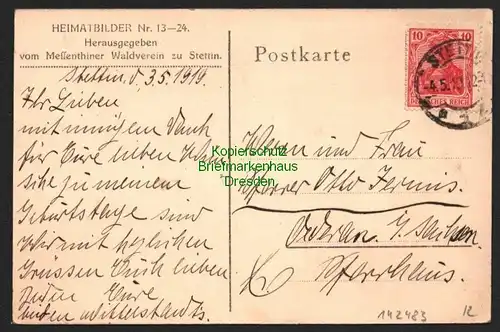 HEIMATBILDER Nr. 13—24.
Herausgegeben
vom Messenthiner Waldverein zu Stettin.
Stettin, d. 3.5.1919.
Ihr Lieben
mit innigem Dank
für Eure lieben Wün
sche zu meinem
Geburtstage sind
wir mit herzlichen
Grüssen Euch lieben
Eure
Postkarte
10 10
DEUTSCHES REICH
STETTIN
-4.5.19
Herrn und Frau
Pfarrer Otto
Oederan i/ Sachsen
Pfarrhaus.
Kopierschutz
Briefmarkenhaus
Dresden
142483
12